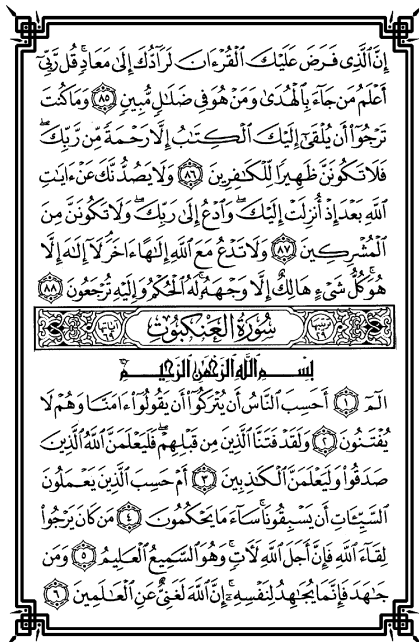 إِنَّ ٱلَّذِى فَرَضَ عَلَيْكَ ٱلْقُرْءَانَ لَرَآدُّكَ إِلَىٰ مَعَادٍۢ ۚ قُل رَّبِّىٓ
أَعْلَمُ مَن جَآءَ بِٱلْهُدَىٰ وَمَنْ هُوَ فِى ضَلَٰلٍۢ مُّبِينٍۢ ٨٥ وَمَا كُنتَ
تَرْجُوٓا۟ أَن يُلْقَىٰٓ إِلَيْكَ ٱلْكِتَٰبُ إِلَّا رَحْمَةًۭ مِّن رَّبِّكَ ۖ
فَلَا تَكُونَنَّ ظَهِيرًۭا لِّلْكَٰفِرِينَ ٨٦ وَلَا يَصُدُّنَّكَ عَنْ ءَايَٰتِ
ٱللَّهِ بَعْدَ إِذْ أُنزِلَتْ إِلَيْكَ ۖ وَٱدْعُ إِلَىٰ رَبِّكَ ۖ وَلَا تَكُونَنَّ مِنَ
ٱلْمُشْرِكِينَ ٨٧ وَلَا تَدْعُ مَعَ ٱللَّهِ إِلَٰهًا ءَاخَرَ ۘ لَآ إِلَٰهَ إِلَّا
هُوَ ۚ كُلُّ شَىْءٍ هَالِكٌ إِلَّا وَجْهَهُۥ ۚ لَهُ ٱلْحُكْمُ وَإِلَيْهِ تُرْجَعُونَ ٨٨
ترتيبها ٢٩ سُورَةُ الْعَنكَبُوت آياتها ٦٩
بِسْمِ ٱللَّهِ ٱلرَّحْمَٰنِ ٱلرَّحِيمِ
الٓمٓ ١ أَحَسِبَ ٱلنَّاسُ أَن يُتْرَكُوٓا۟ أَن يَقُولُوٓا۟ ءَامَنَّا وَهُمْ لَا
يُفْتَنُونَ ٢ وَلَقَدْ فَتَنَّا ٱلَّذِينَ مِن قَبْلِهِمْ ۖ فَلَيَعْلَمَنَّ ٱللَّهُ ٱلَّذِينَ
صَدَقُوا۟ وَلَيَعْلَمَنَّ ٱلْكَٰذِبِينَ ٣ أَمْ حَسِبَ ٱلَّذِينَ يَعْمَلُونَ
ٱلسَّيِّـَٔاتِ أَن يَسْبِقُونَا ۚ سَآءَ مَا يَحْكُمُونَ ٤ مَن كَانَ يَرْجُوا۟
لِقَآءَ ٱللَّهِ فَإِنَّ أَجَلَ ٱللَّهِ لَءَاتٍۢ ۚ وَهُوَ ٱلسَّمِيعُ ٱلْعَلِيمُ ٥ وَمَن
جَٰهَدَ فَإِنَّمَا يُجَٰهِدُ لِنَفْسِهِۦٓ ۚ إِنَّ ٱللَّهَ لَغَنِىٌّ عَنِ ٱلْعَٰلَمِينَ ٦